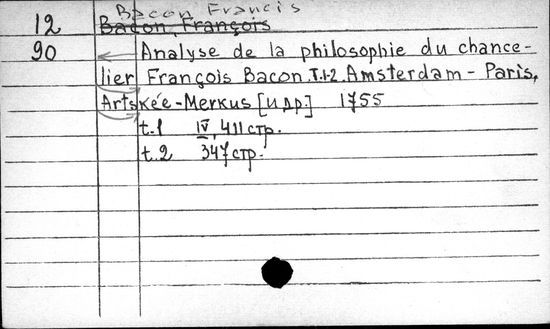 Bacon Francis
12 Bacon, François
90 Analyse de la philosophie du chance-
lier François Bacon. T.1-2. Amsterdam - Paris,
Artskée-Merkus [и др.] 1755
t.1 IV, 411 стр.
t.2 347 стр.